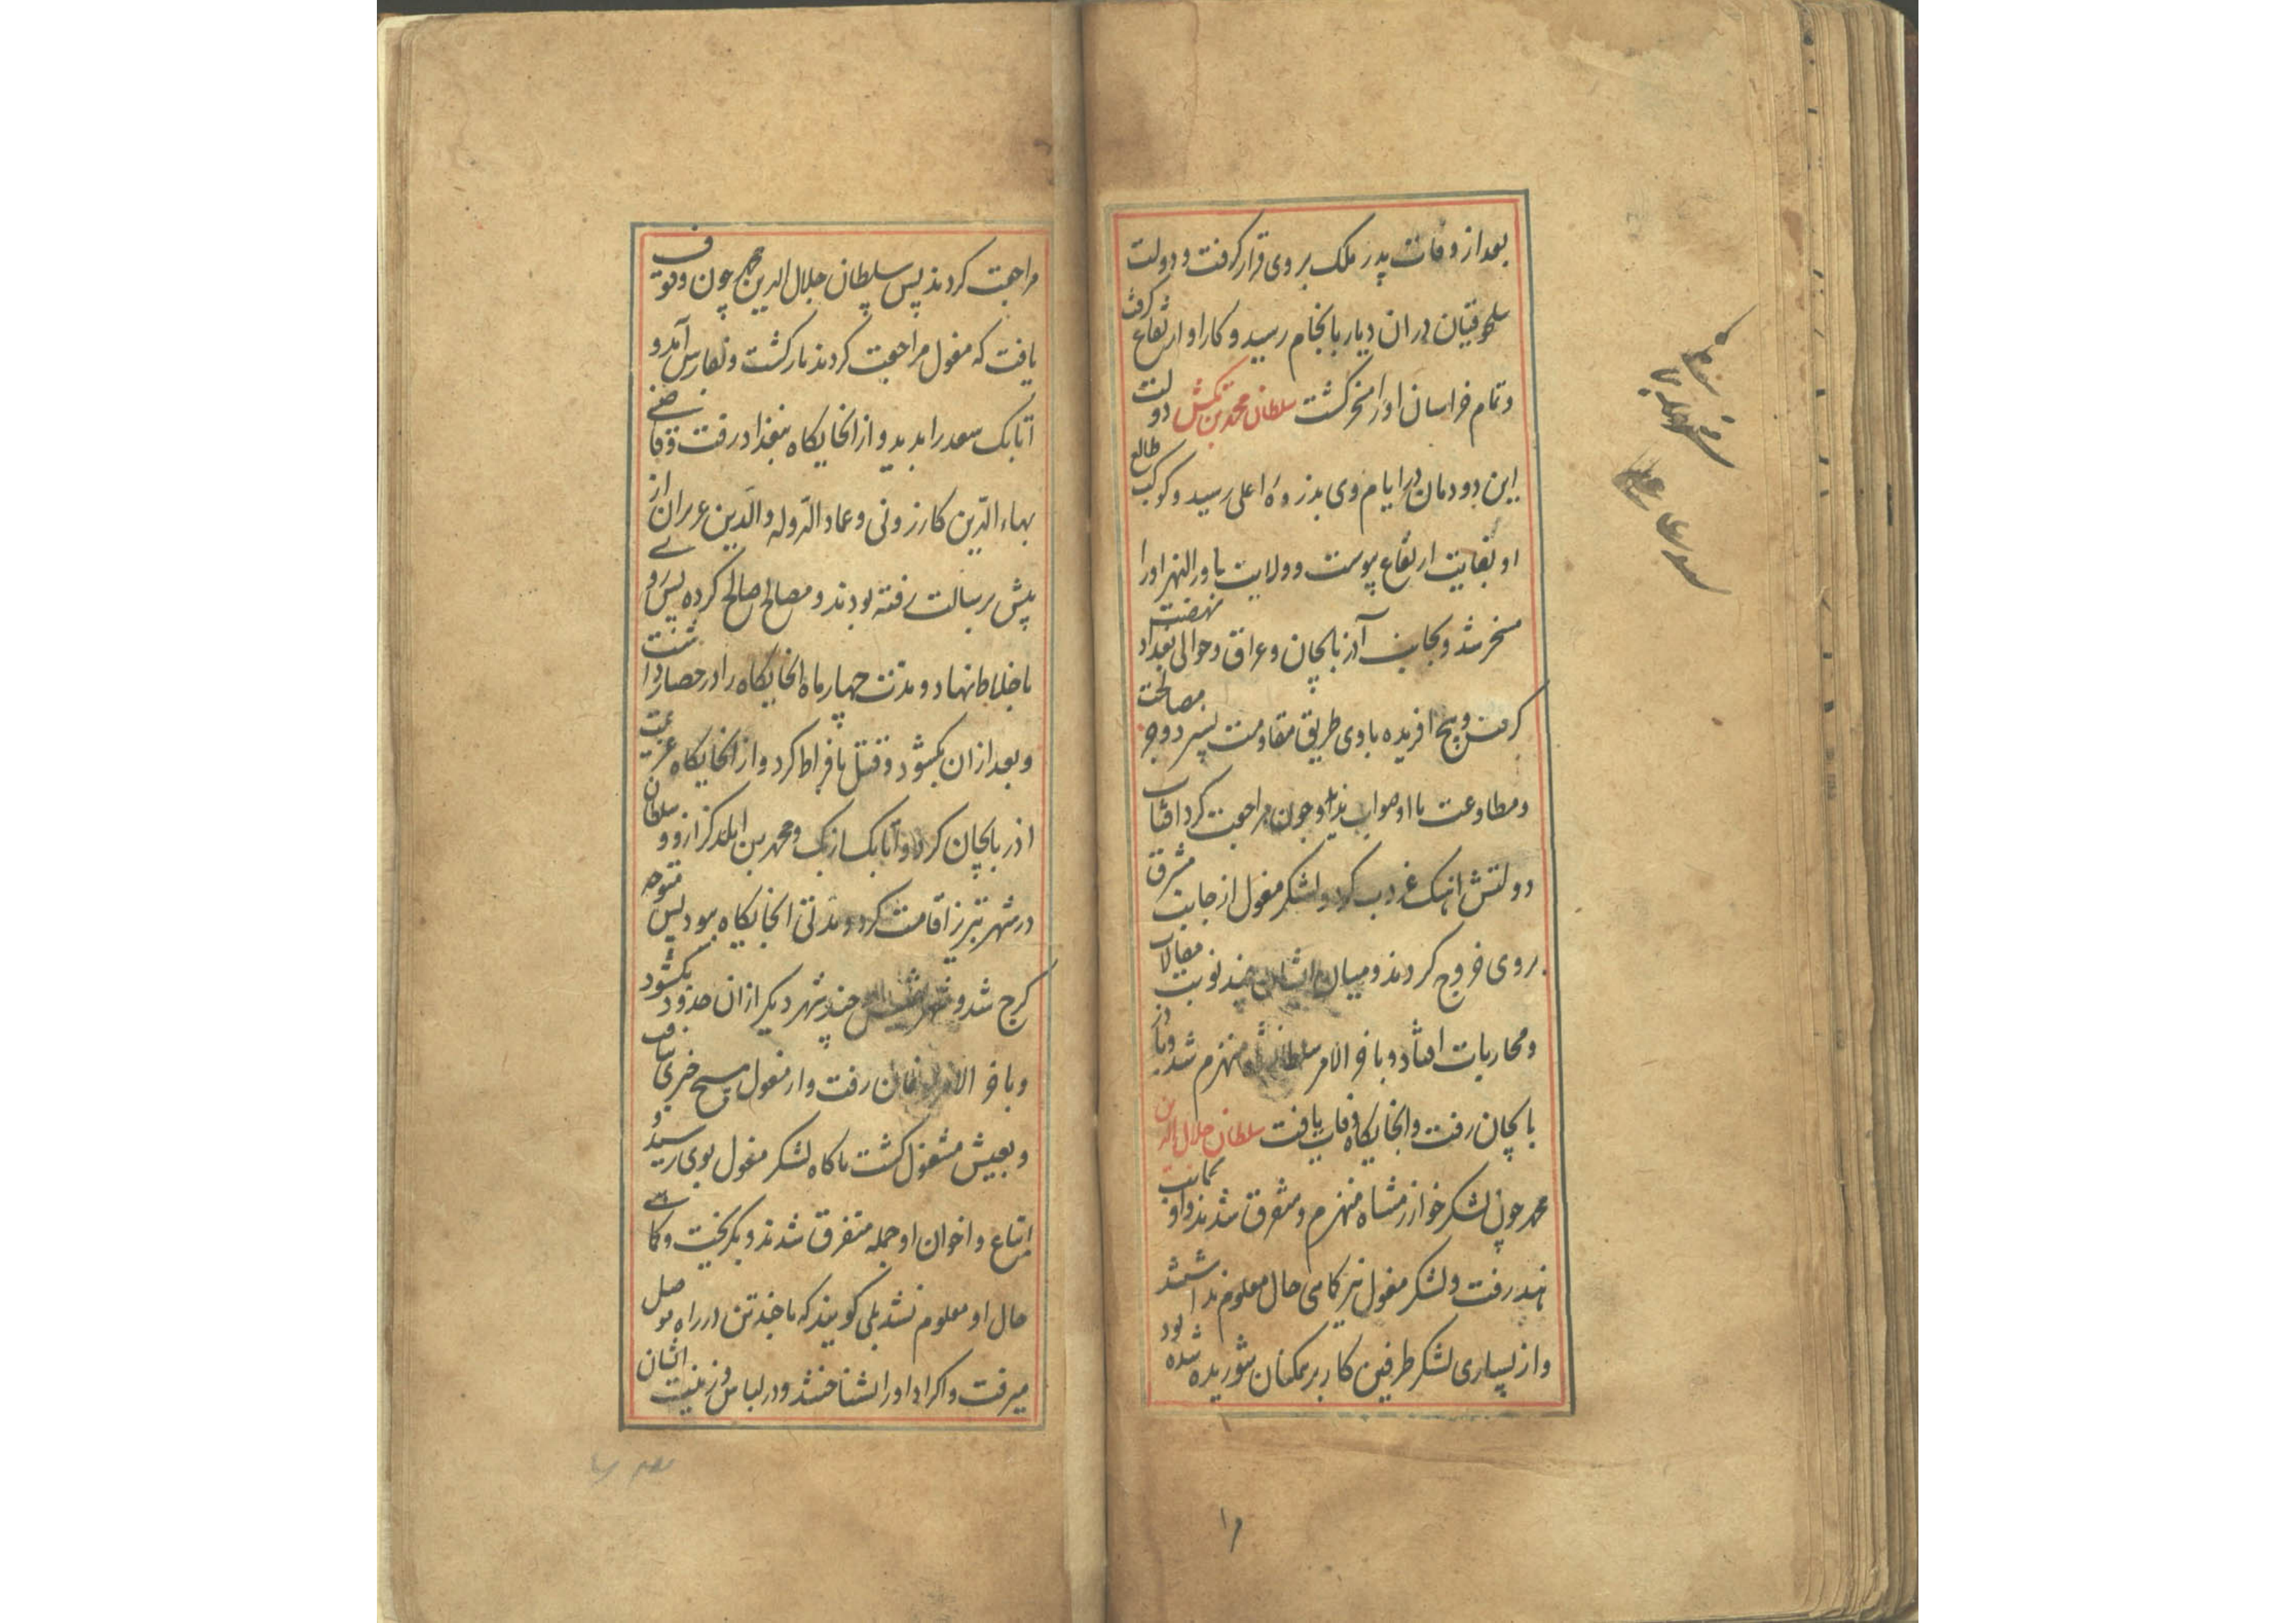 بعد از وفات پدر ملک بروی قرار گرفت و دولت
سلجوقیان دران دیار بانجام رسید و کار او ارتفاع گرفت
و تمام خراسان او را مسخر گشت سلطان محمد بن تکش دولت
این دودمان در ایام وی بذروه اعلی رسید و کوکب طالع
او بغایت ارتفاع پیوست و ولایت ماورالنهر او را
مسخر شد و بجانب آذربایجان و عراق و حوالی بغداد نهضت
کرد و هیچ افریده با وی طریق مقاومت نسپرد و جز مصالحت
و مطاوعت با او صواب ندید و چون مراجعت کرد افتاب
دولتش اهنک غروب کرد و لشکر مغول از جانب مشرق
بروی خروج کردند و میان ایشان چند نوبت مقالات
و محاربات افتاد و باخر الامر سلطان منهزم شد و
رفت و انجایکاه وفات یافت سلطان جلال الدین
محمد چون لشکر خوارزمشاه منهزم و متفرق شدند و او بجانب
هند رفت و لشکر مغول نیز کماهی حال معلوم نداشتند
و از بسیاری لشکر طرفین کار بر همکنان شوریده شده بود
مراجعت کردند پس سلطان جلال الدین محمد چون وقوف
یافت که مغول مراجعت کردند بازکشت و بفارس آمد و
اتابک سعد را بدید و از انجایکاه ببغداد رفت و قاضی
بهاء الدین کازرونی و عماد الدوله والدین عمران از
پیش برسالت رفته بودند و مصالح اصالح کرده پس روی
باخلاط نهاد و مدت چهار ماه انجایکاه را در حصار داشت
و بعد ازان بکشود و قتل بافراط کرد و از انجایکاه عزیمت
اذربایجان کرد و اتابک ازبک و محمد بن ایلدکز از و سلطان
در شهر تبریز اقامت کرد و مدتی انجایکاه ببود پس متوجه
کرج شد و شهر تفلیس و چند شهر دیکر ازان حدود بکشود
و باخر الامر رفت و از مغول هیچ خبری نیافت
و بعیش مشغول کشت ناکاه لشکر مغول بوی رسید و
اتباع و اخوان او جمله متفرق شدند و بکریخت و کماهی
حال او معلوم نشد بلی کویند که با چند تن در راه موصل
میرفت و اکراد او را نشناختند و در لباس و زینت ایشان